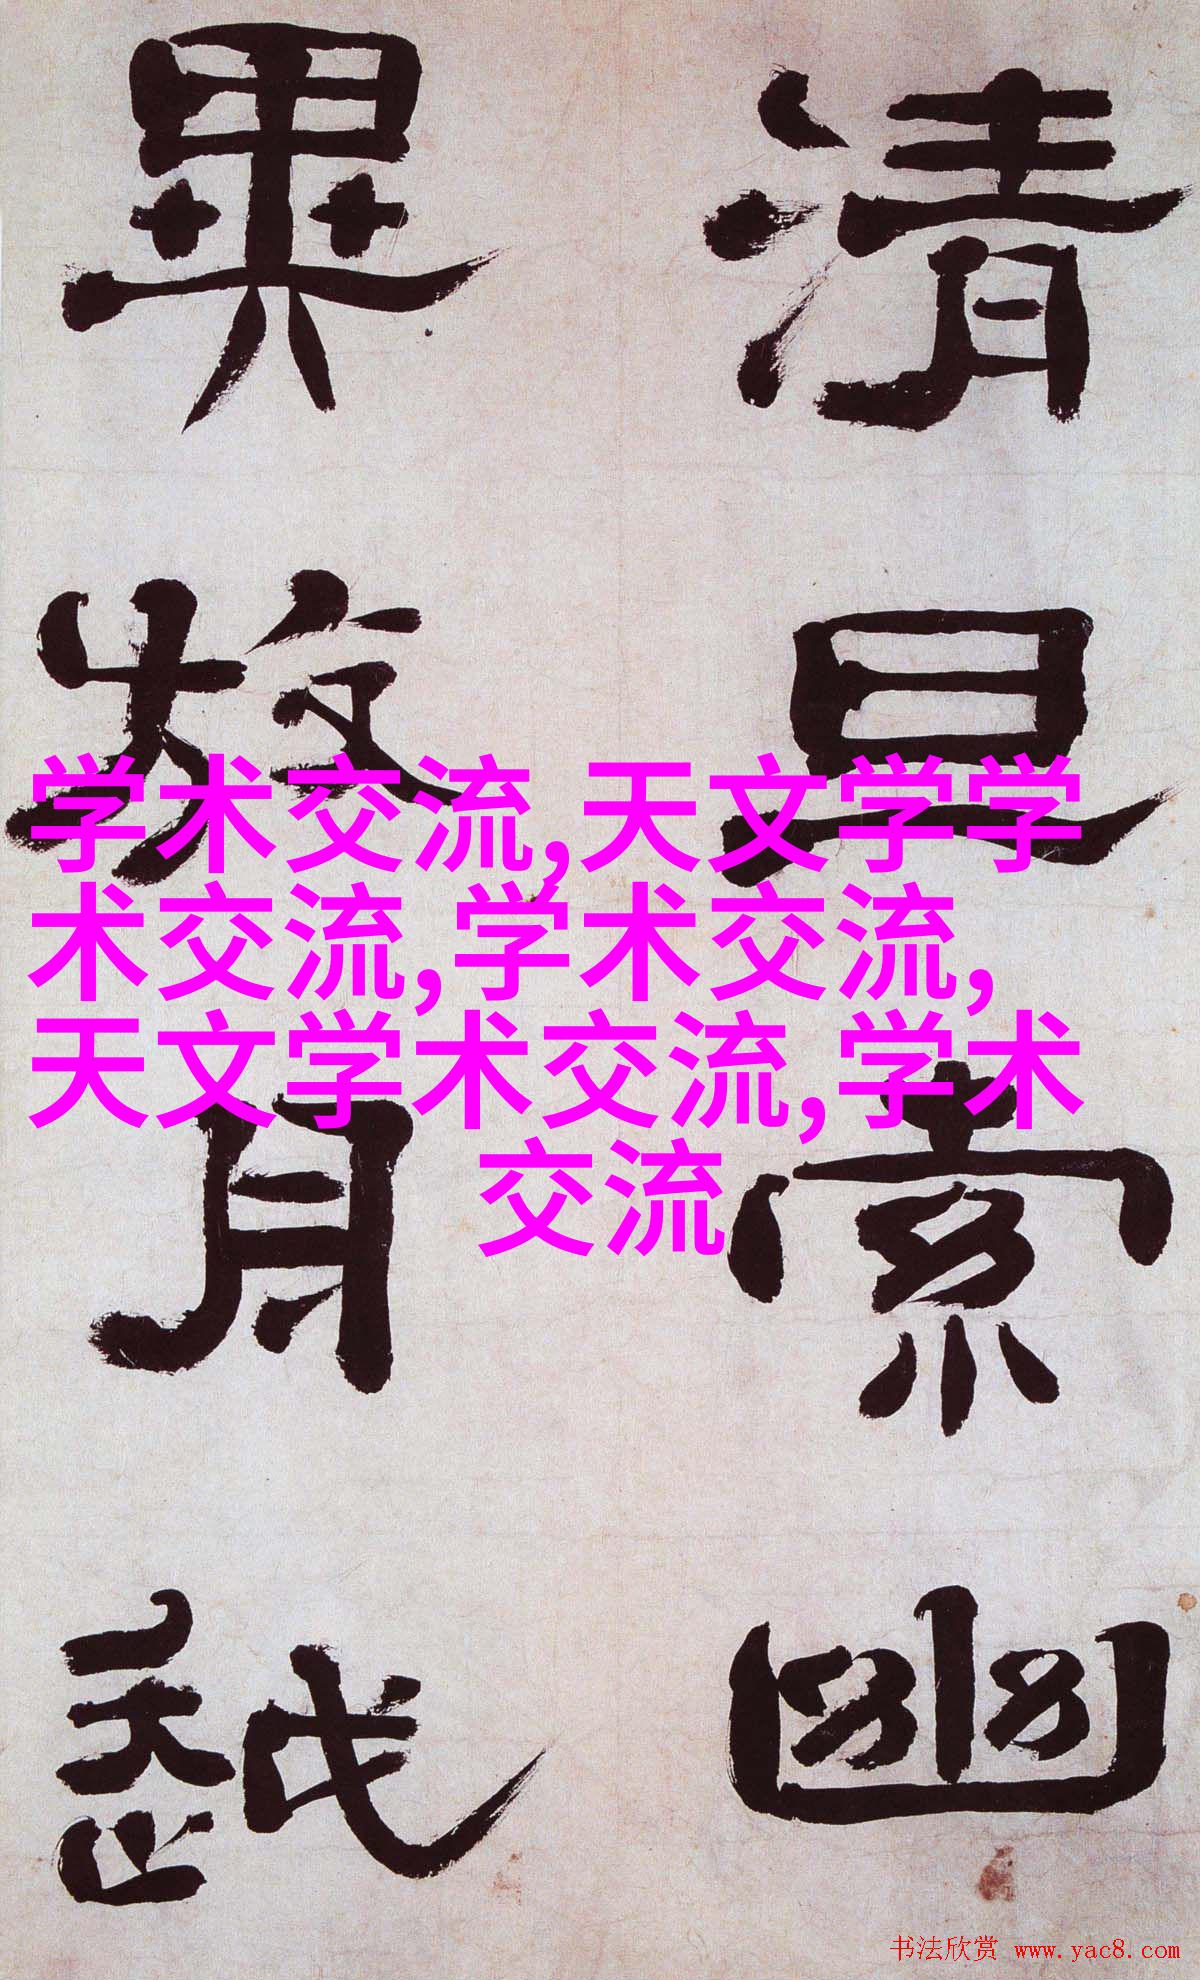 清旦索幽
異放舟越
学术交流,天文学学
术交流,学术交流,
天文学术交流,学术
交流
书法欣赏 www.yac8.com